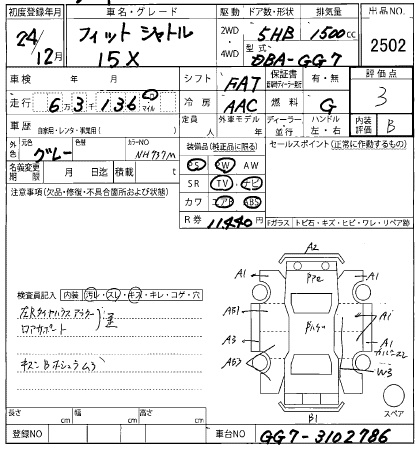 初度登録年月 車名・グレード 駆動 ドア数・形状 排気量 出品NO.
24/12月 フィット シャトル 15X 2WD・4WD 5HB 1500cc 2502
型式 DBA-GG7
車検 年 月 シフト FAT 保証書 有・無 評価点 3
走行 63,136 マイル 冷房 AAC 燃料 G
車歴 自家用・レンタ・事業用( ) 定員 人 外車モデル 年 ディーラー・並行 ハンドル 左・右 内装評価 B
外色 元色 グレー 色替 カラーNO NH737M 装備品(純正品に限る) セールスポイント(正常に作動するもの)
名義変更期限 月 日迄 積載 t PS PW AW
注意事項(欠品・修復・不具合箇所および状態) SR TV ナビ
カワ エアB ABS
R券 11,440円
Fガラス トビ石・キズ・ヒビ・ワレ・リペア跡
A2
A1 A1
AB1 A1
A3 A1
AB3 W3
B1
スペア
検査員記入 内装 汚レ・スレ・キズ・キレ・コゲ・穴
長さ cm 幅 cm 高さ cm
登録NO 車台NO GG7-3102786